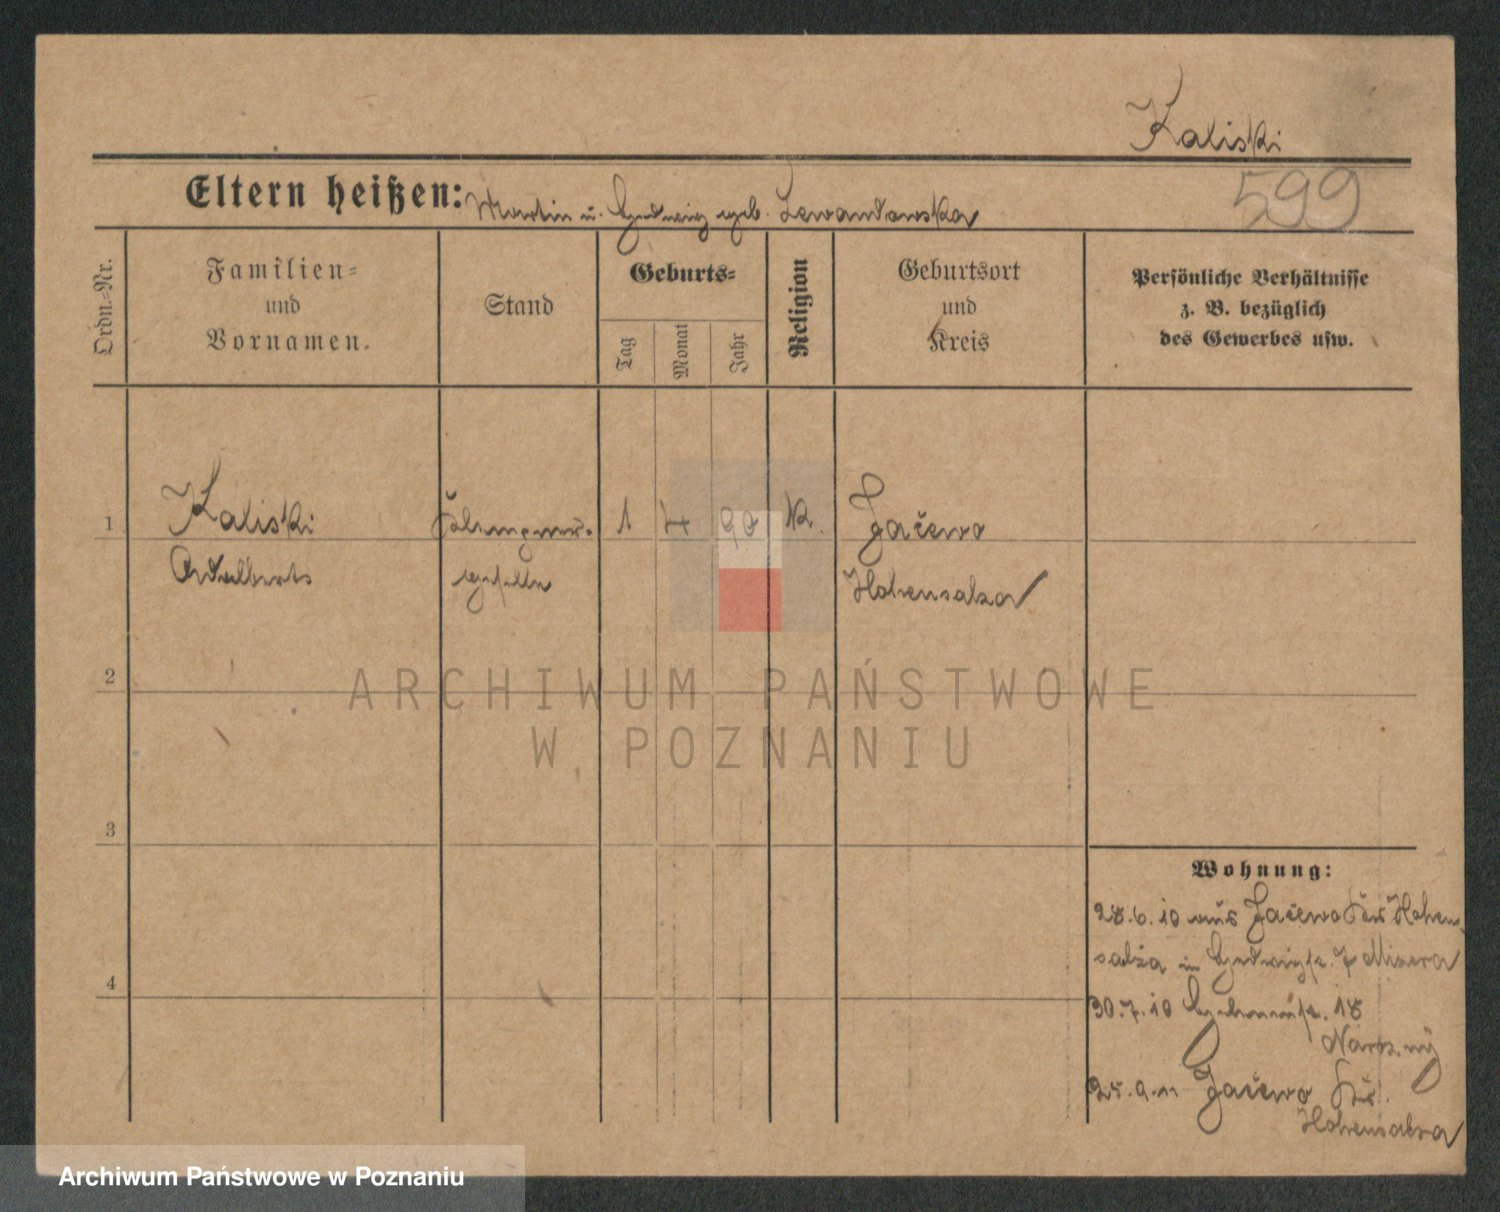 Kaliski
599
Eltern heißen: Martin u. Hedwig geb. Lewandowska
Ordn.=Nr.
Familien=
und
Vornamen.
Stand
Geburts=
Tag
Monat
Jahr
Religion
Geburtsort
und
Kreis
Persönliche Verhältnisse
z. B. bezüglich
des Gewerbes usw.
1
Kaliski
Adalbert
geselle
1 4 90 k.
Jacewo
Hohensalza
2
3
4
Wohnung:
28.6.10 aus Jacewo Krs Hohen
salza in 7 Misera
30.7.10 18
25.9.11 Jacewo Krs.
Hohensalza
ARCHIWUM PAŃSTWOWE
W POZNANIU
Archiwum Państwowe w Poznaniu